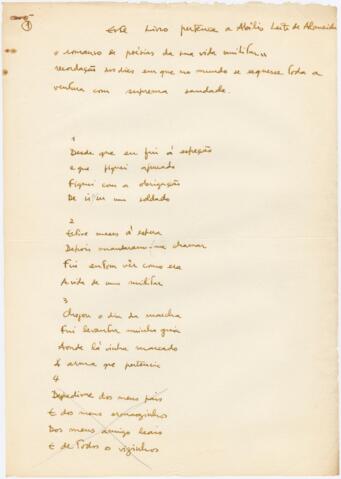 1
Este Livro pertence a Abilio Leite de Almeida
o romance de poisias da sua vida militar
recordação dos dias em que no mundo se esquesse toda a
ventura com suprema saudade.
1
Desde que eu fui á espeção
e que fiquei apurado
Fiquei com a obrigação
De ir ser um soldado
2
Estive meses á espera
Depois mandaram-me chamar
Fui entom vêr como era
A vida de um militar
3
Chegou o dia da marcha
Fui levantar minha guia
Aonde lá vinha marcado
A arma que pertencia
4
Depedime dos meus pais
E dos meus ermaozinhos
Dos meus amigo leais
E de todos o vizinhos